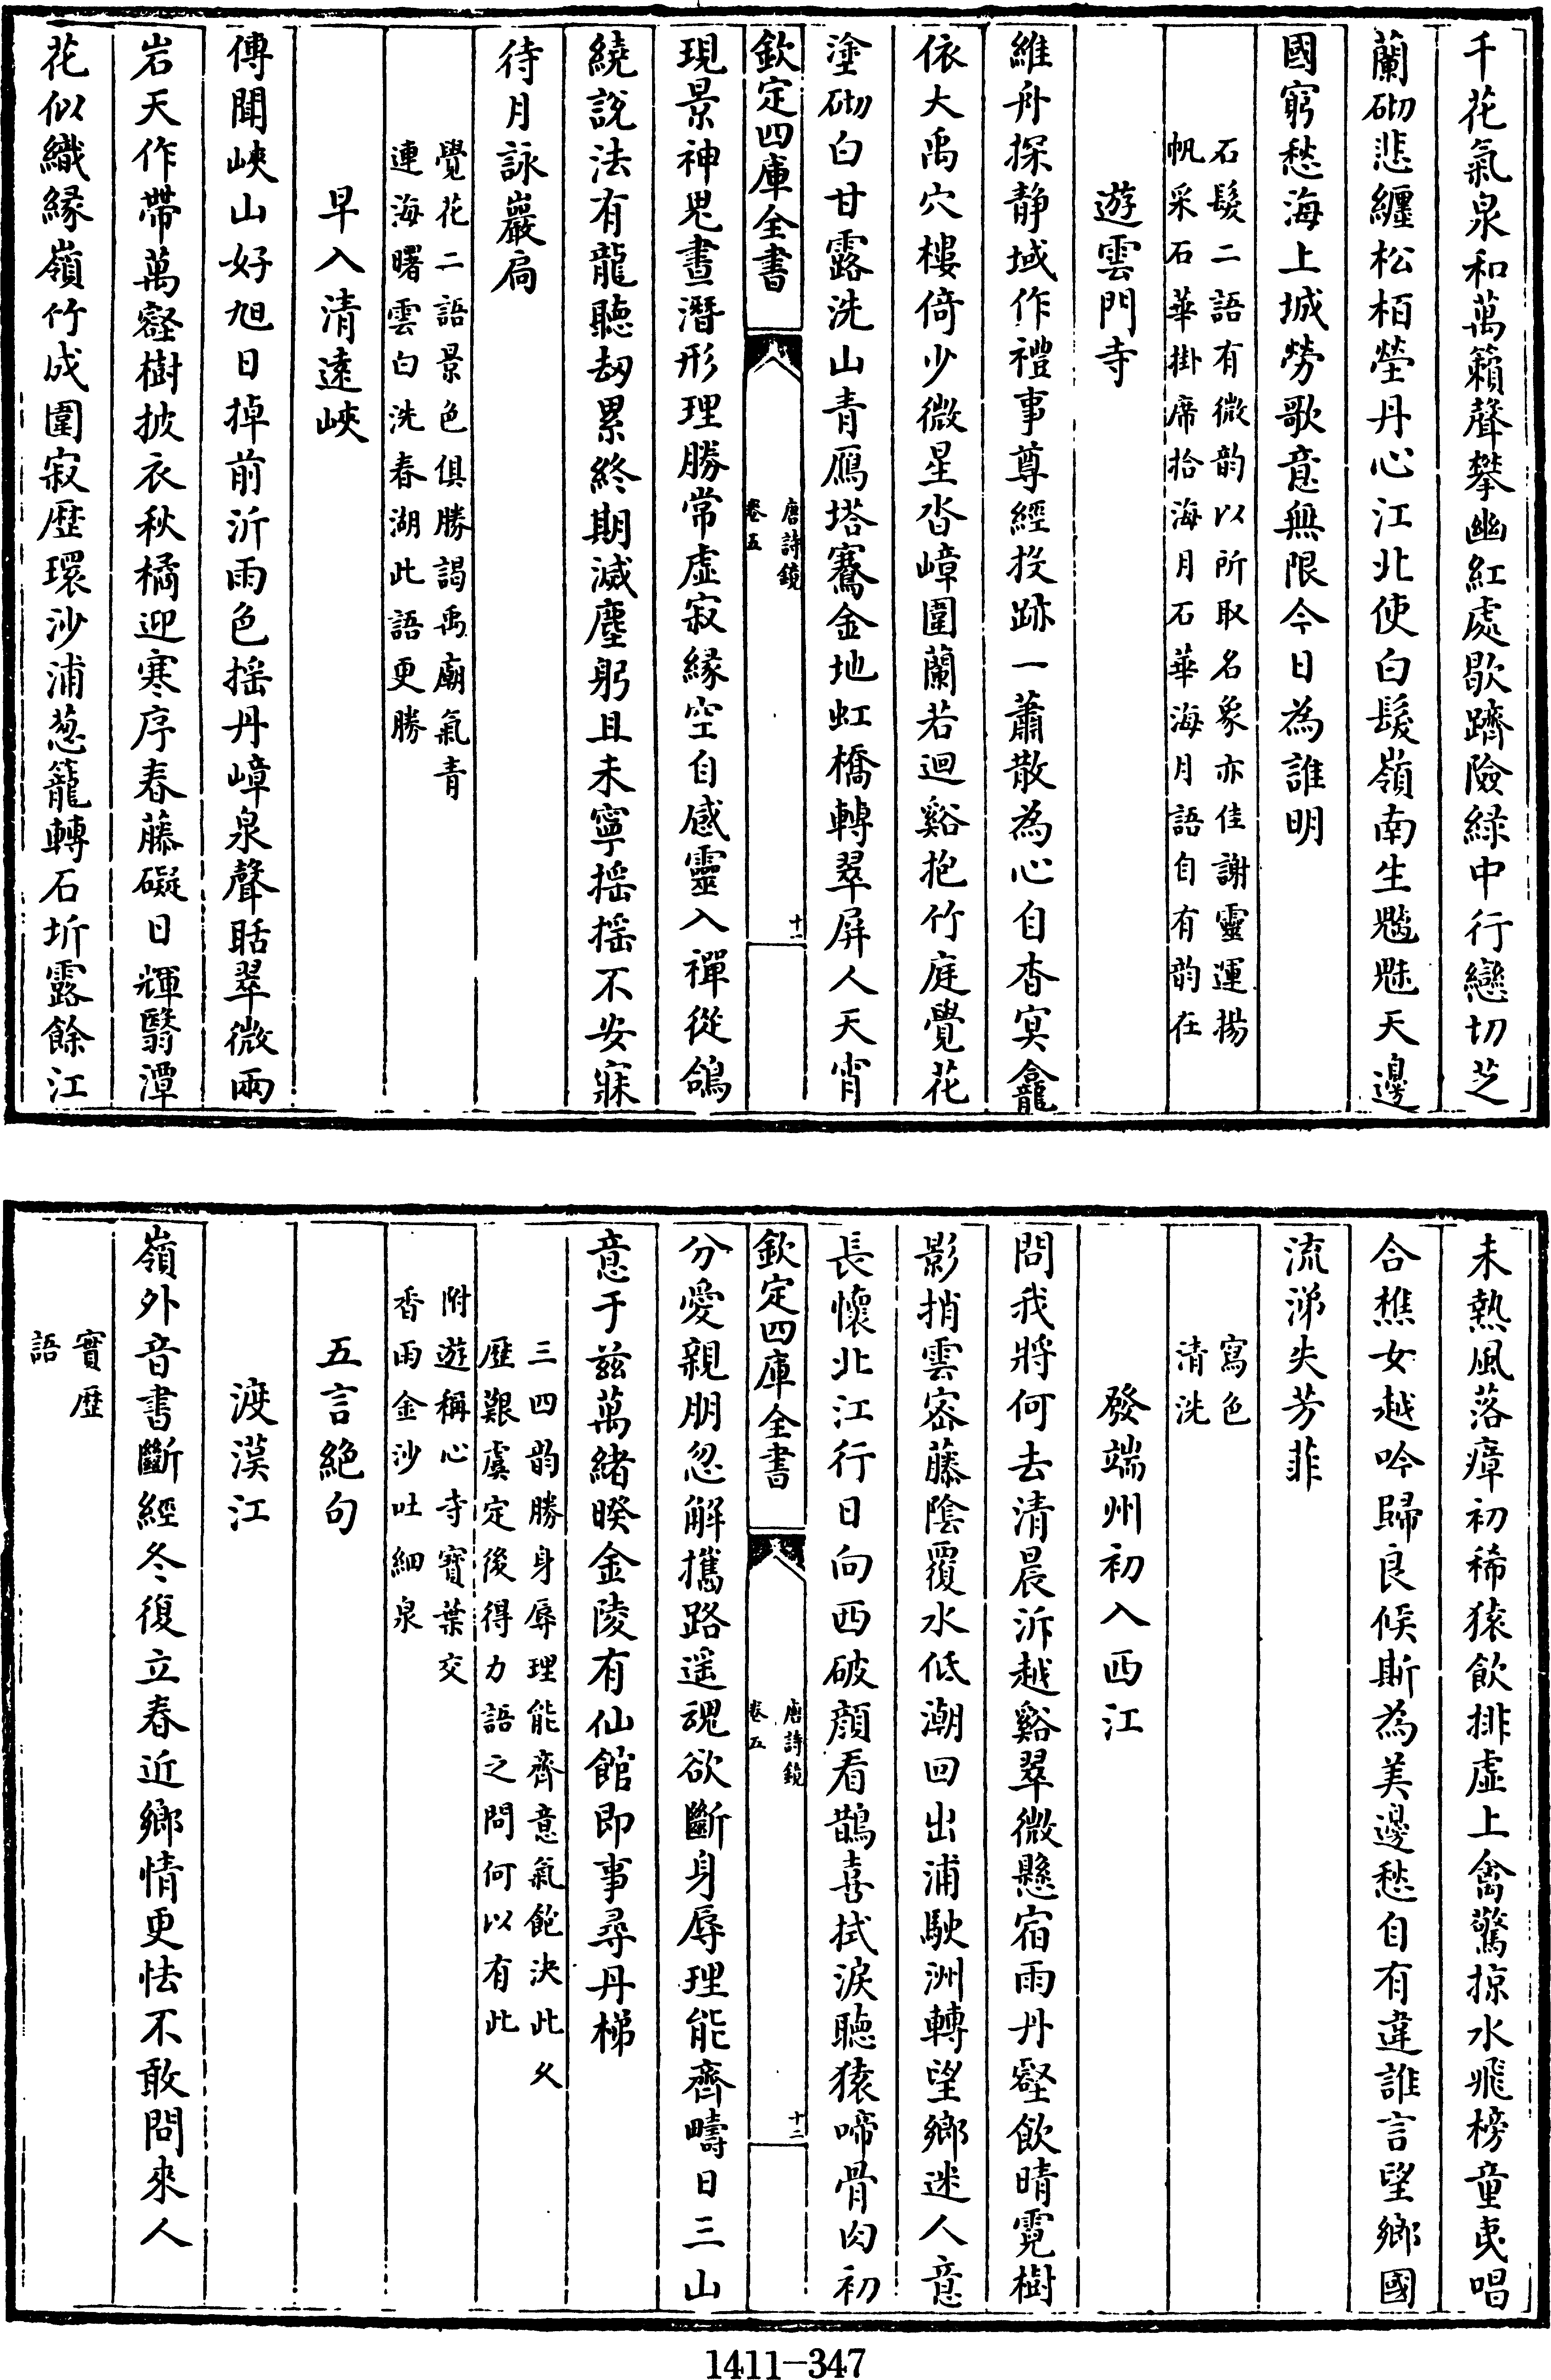 千花氣泉和萬籟聲攀幽紅處歇躋險綠中行戀切芝
蘭砌悲纏松栢塋丹心江北使白髮嶺南生魑魅天邊
國窮愁海上城勞歌意無限今日為誰明
石髮二語有微韵以所取名象亦佳謝靈運揚
帆采石華掛席拾海月石華海月語自有韵在
遊雲門寺
維舟探靜域作禮事尊經投跡一蕭散為心自杳冥龕
依大禹穴樓倚少微星沓嶂圍蘭若迴谿抱竹庭覺花
塗砌白甘露洗山青鴈塔騫金地虹橋轉翠屏人天宵
欽定四庫全書
唐詩鏡
卷五
十一
現景神鬼晝潛形理勝常虛寂緣空自感靈入禪從鴿
繞說法有龍聽刧累終期滅塵躬且未寧摇摇不安寐
待月詠巖扃
覺花二語景色俱勝謁禹廟氣青
連海曙雲白洗春湖此語更勝
早入清遠峽
傳聞峽山好旭日掉前沂雨色摇丹嶂泉聲聒翠微兩
岩天作帶萬壑樹披衣秋橘迎寒序春藤礙日輝翳潭
花似織緣嶺竹成圍寂歷環沙浦葱籠轉石圻露餘江
未熱風落瘴初稀猿飲排虛上禽驚掠水飛榜童夷唱
合樵女越吟歸良候斯為美邊愁自有違誰言望鄉國
流涕失芳菲
寫色
清洗
發端州初入西江
問我將何去清晨泝越谿翠微懸宿雨丹壑飲晴霓樹
影捎雲密藤陰覆水低潮回出浦駛洲轉望鄉迷人意
長懷北江行日向西破顏看鵲喜拭淚聽猿啼骨肉初
欽定四庫全書
唐詩鏡
卷五
十二
分愛親朋忽解攜路遥魂欲斷身辱理能齊疇日三山
意于兹萬緒暌金陵有仙館即事尋丹梯
三四韵勝身辱理能齊意氣飽決此久
歷艱虞定後得力語之問何以有此
附遊稱心寺寳葉交
香雨金沙吐細泉
五言絕句
渡漢江
嶺外音書斷經冬復立春近鄉情更怯不敢問來人
實歷
語
1411-347